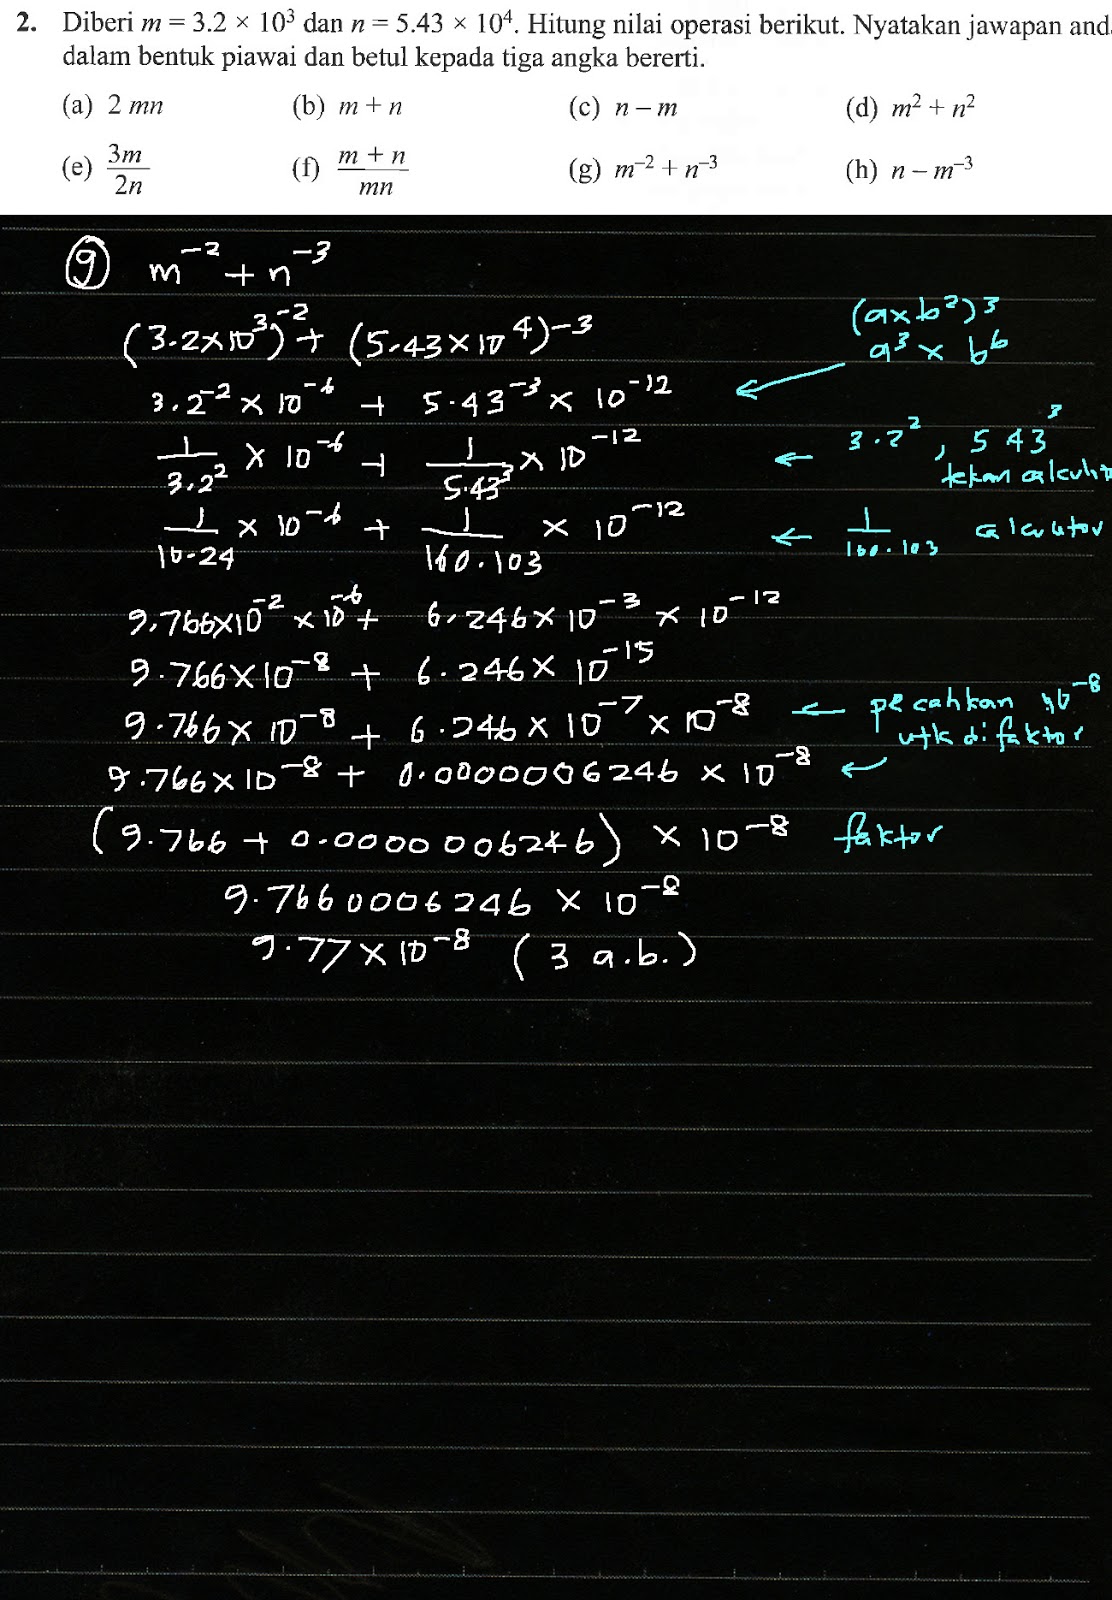 2. Diberi m = 3.2 × 10³ dan n = 5.43 × 10⁴. Hitung nilai operasi berikut. Nyatakan jawapan and
dalam bentuk piawai dan betul kepada tiga angka bererti.
(a) 2 mn (b) m + n (c) n – m (d) m² + n²
(e) 3m/2n (f) m + n/mn (g) m⁻² + n⁻³ (h) n – m⁻³
g m⁻² + n⁻³
(3.2×10³)⁻² + (5.43×10⁴)⁻³ (a×b²)³
a³ × b⁶
3.2⁻² × 10⁻⁶ + 5.43⁻³ × 10⁻¹² ←
1/3.2² × 10⁻⁶ + 1/5.43³ × 10⁻¹² ← 3.2², 5 43³
tekan
1/10.24 × 10⁻⁶ + 1/160.103 × 10⁻¹² ← 1/160.103
9.766×10⁻² × 10⁻⁶ + 6.246×10⁻³ × 10⁻¹²
9.766×10⁻⁸ + 6.246× 10⁻¹⁵
9.766× 10⁻⁸ + 6.246 × 10⁻⁷ × 10⁻⁸ ← pecahkan 10⁻⁸
utk difaktor
9.766×10⁻⁸ + 0.0000006246 × 10⁻⁸ ←
(9.766 + 0.0000006246) × 10⁻⁸ faktor
9.7660006246 × 10⁻⁸
9.77×10⁻⁸ (3 a.b.)